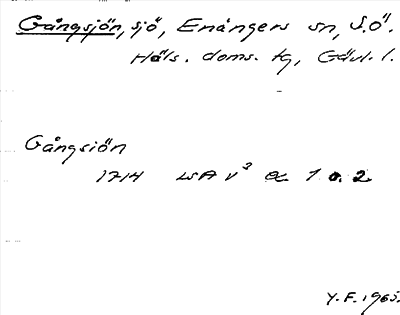 Gångsjön, sjö, Enångers sn, S.Ö.
Häls. doms. tg, Gävl. l.
Gångsiön
1714 LSA V3 1 o. 2
Y.F. 1965.